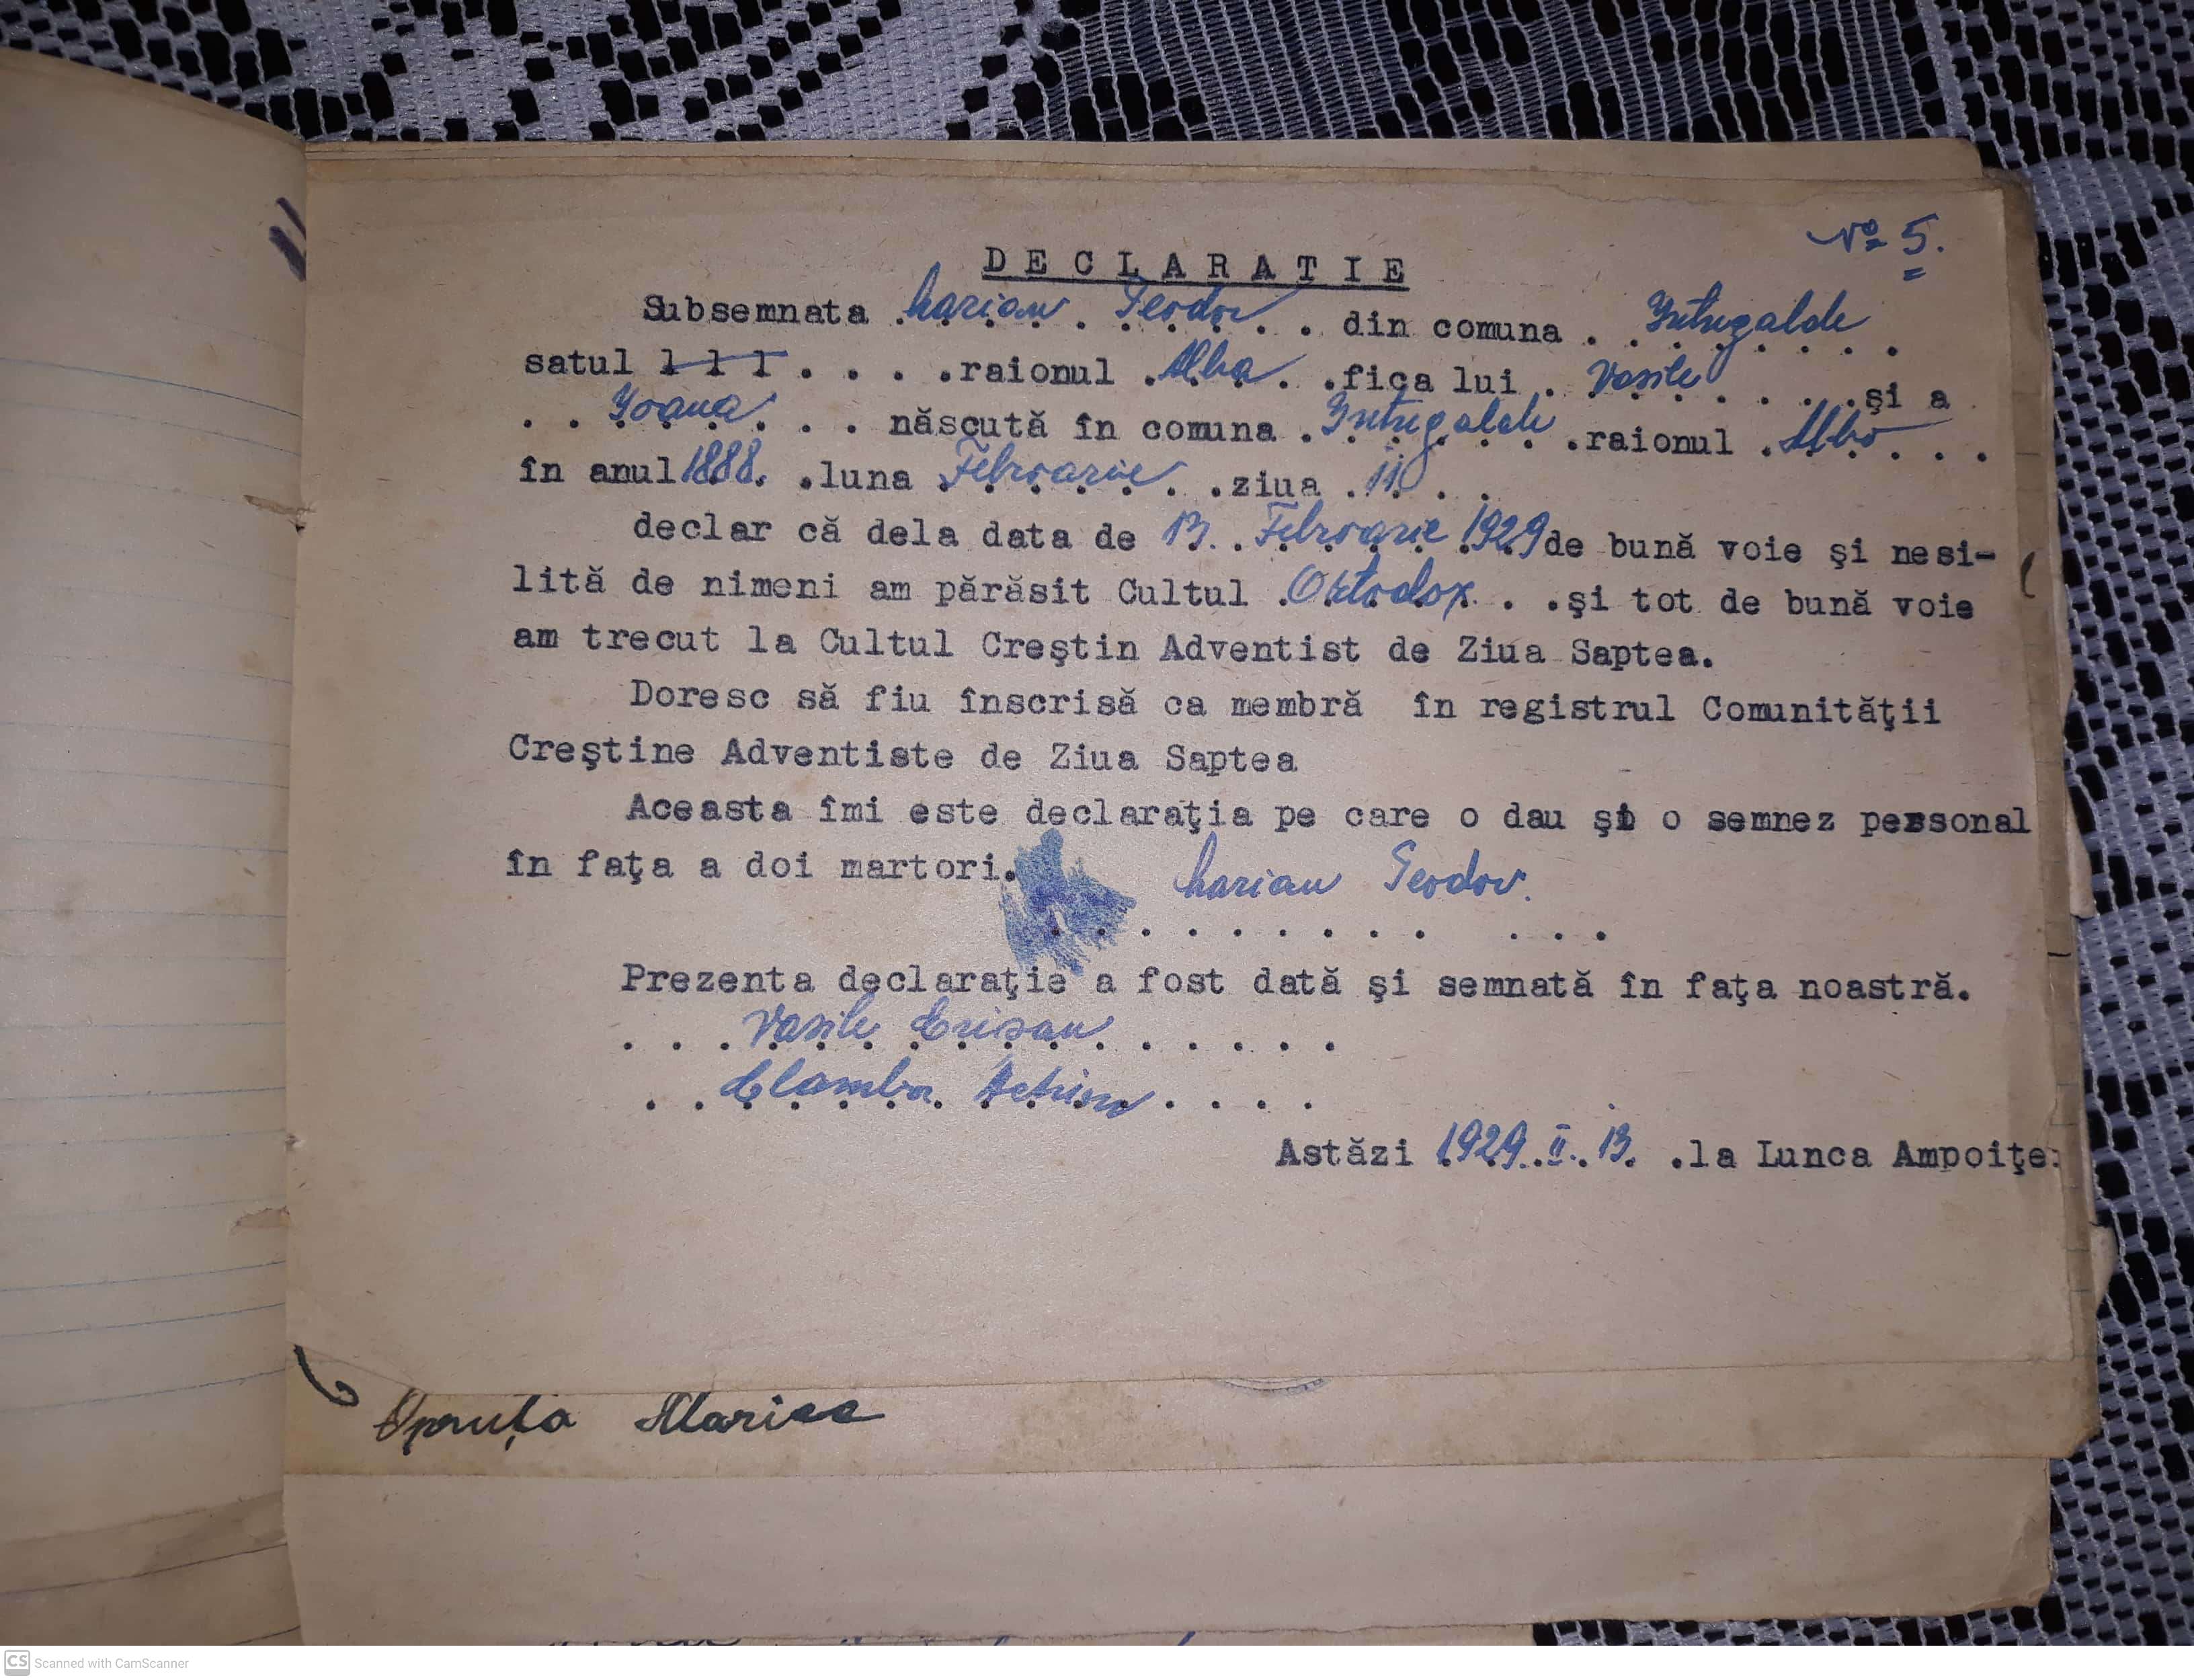 No 5.
DECLARATIE
Subsemnata Marian Teodor din comuna Intregalde
satul l l l . . . . raionul Alba . . fica lui . Vasile . . . . . și a
. . Ioana . . . născută în comuna . Intregalde . raionul . Alba . . .
în anul 1888. . luna Februarie . . ziua . 11 . .
declar că dela data de 13. . Februarie 1929 de bună voie și nesi-
lită de nimeni am părăsit Cultul . Ortodox . . . și tot de bună voie
am trecut la Cultul Creştin Adventist de Ziua Saptea.
Doresc să fiu înscrisă ca membră în registrul Comunităţii
Creştine Adventiste de Ziua Saptea
Aceasta îmi este declaraţia pe care o dau și o semnez personal
în faţa a doi martori.
Marian Teodor.
Prezenta declaraţie a fost dată şi semnată în faţa noastră.
. . . Vasile Crisan . . . . .
. . Clamba . . . .
Astăzi 1929. II. 13. . la Lunca Ampoiţei
Opruța Mariea
CS Scanned with CamScanner